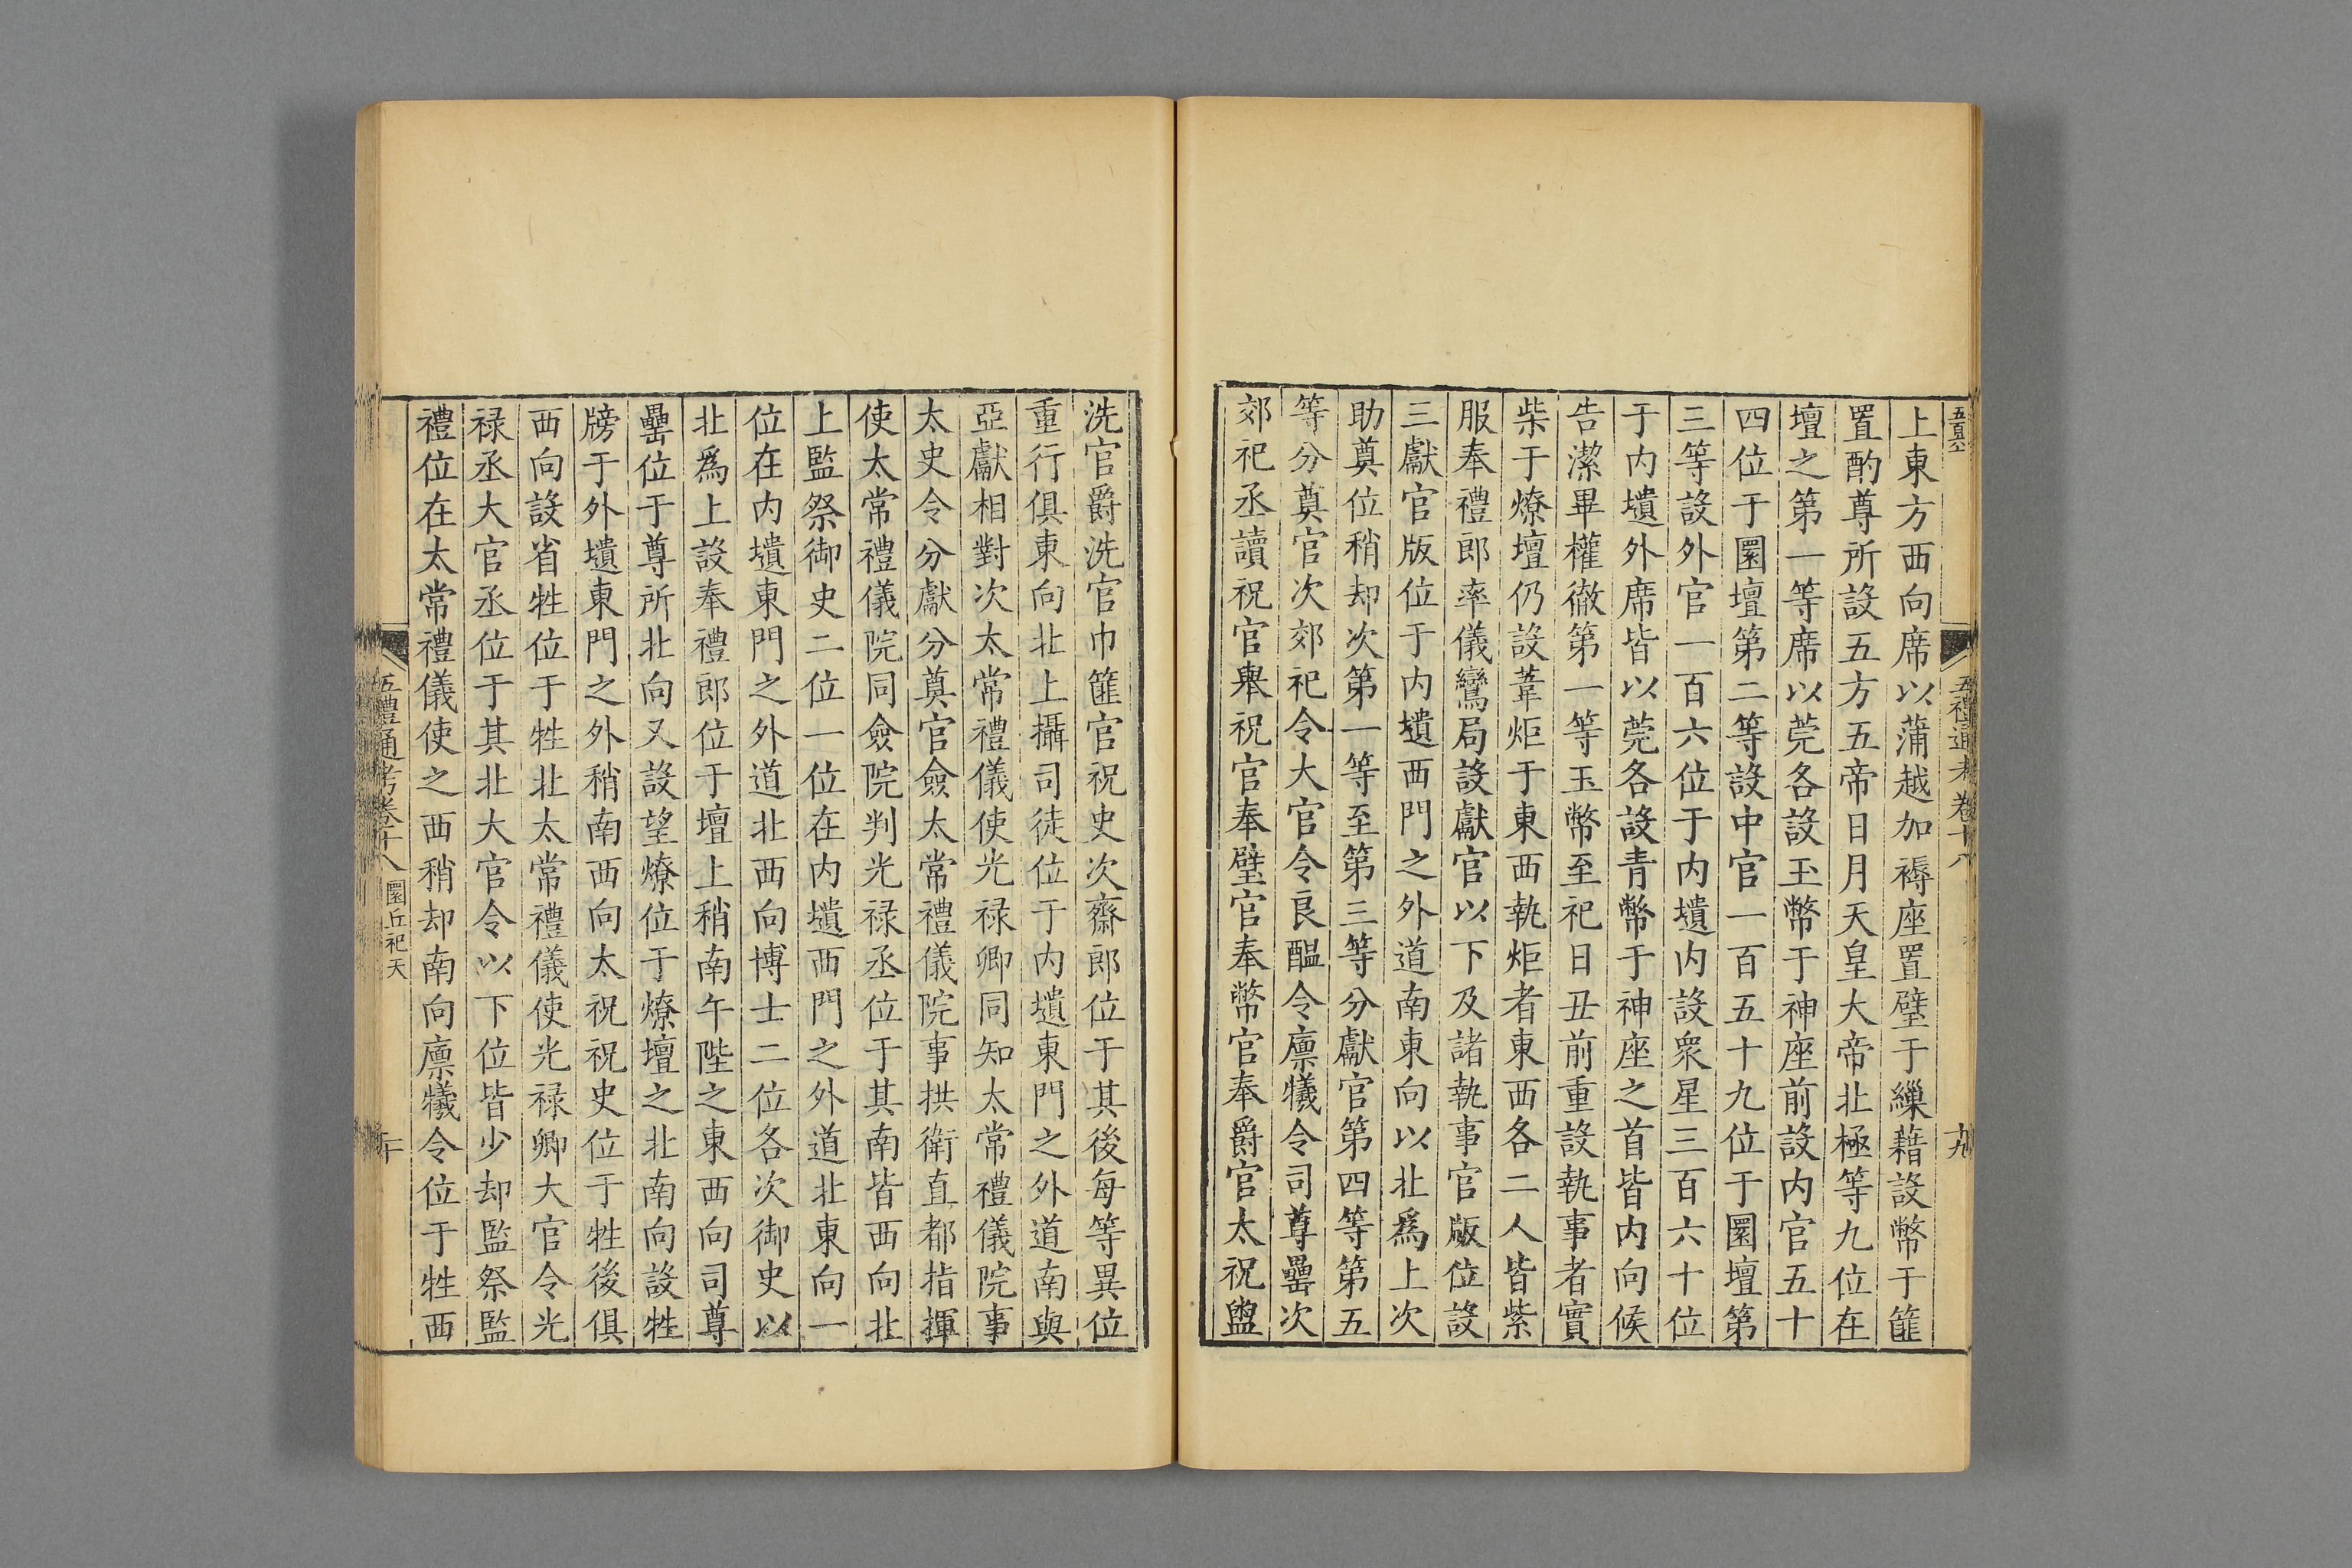 上東方西向席以蒲越加褥座置璧于繅藉設幣于篚
置酌尊所設五方五帝日月天皇大帝北極等九位在
壇之第一等席以莞各設玉幣于神座前設内官五十
四位于圜壇第二等設中官一百五十九位于圜壇第
三等設外官一百六位于内壝内設衆星三百六十位
于内壝外席皆以莞各設青幣于神座之首皆内向候
告潔畢權徹第一等玉幣至祀日丑前重設執事者實
柴于燎壇仍設葦炬于東西執炬者東西各二人皆紫
服奉禮郎率儀鸞局設獻官以下及諸執事官版位設
三獻官版位于内壝西門之外道南東向以北爲上次
助奠位稍却次第一等至第三等分獻官第四等第五
等分奠官次郊祀令大官令良醞令廪犧令司尊罍次
郊祀丞讀祝官舉祝官奉璧官奉幣官奉爵官太祝盥
五禮通考卷十八
十九
洗官爵洗官巾篚官祝史次齋郎位于其後每等異位
重行俱東向北上攝司徒位于内壝東門之外道南與
亞獻相對次太常禮儀使光禄卿同知太常禮儀院事
太史令分獻分奠官僉太常禮儀院事拱衛直都指揮
使太常禮儀院同僉院判光禄丞位于其南皆西向北
上監祭御史二位一位在内壝西門之外道北東向一
位在内壝東門之外道北西向博士二位各次御史以
北爲上設奉禮郎位于壇上稍南午陛之東西向司尊
罍位于尊所北向又設望燎位于燎壇之北南向設牲
牓于外壝東門之外稍南西向太祝祝史位于牲後俱
西向設省牲位于牲北太常禮儀使光禄卿大官令光
禄丞大官丞位于其北大官令以下位皆少却監祭監
禮位在太常禮儀使之西稍却南向廪犧令位于牲西
五禮通考卷十八 圜丘祀天
二十